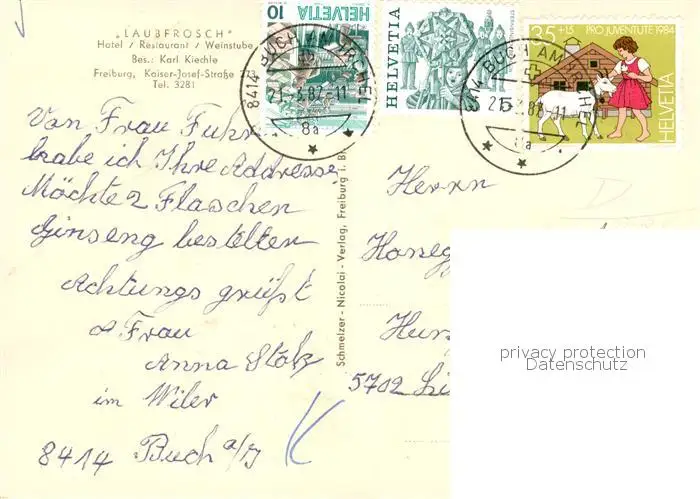 „LAUBFROSCH"
Hotel / Restaurant / Weinstube
Bes.: Karl Kiechle
Freiburg, Kaiser-Josef-Straße 273
Tel. 3281
10 HELVETIA
HELVETIA
35+15 PRO JUVENTUTE 1984
HELVETIA
8414 BUCH AM IRCHEL
21.-5.87-11
8a
BUCH AM
21.5.87-11
8a
Von Frau Fuhr
habe ich Ihre Addresse,
Möchte 2 Flaschen
Ginseng bestellen
Achtungs grüßt
Frau
Anna Stolz
im Wiler
8414 Buch a/I
Schmelzer-Nicolai-Verlag, Freiburg i. Br.
Herrn
Honeg
5702
privacy protection
Datenschutz